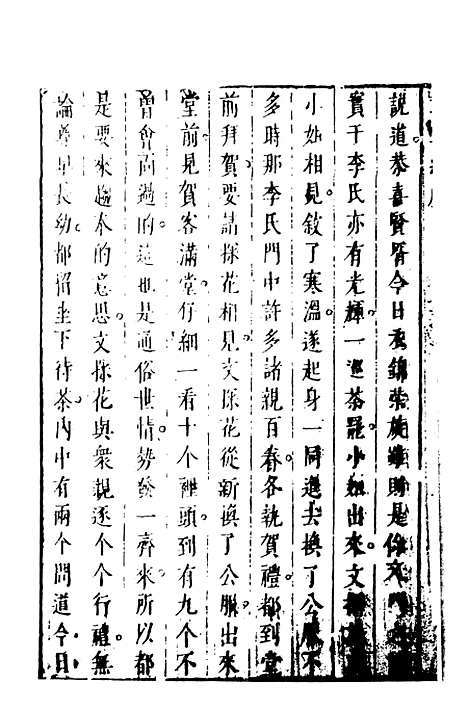 說道恭喜賢壻今日衣錦榮旋雖則是你文門
實于李氏亦有光輝一巡茶罷小姐出來文
小姐相見敘了寒溫遂起身一同進去換了公服不
多時那李氏門中許多諸親百眷各執賀禮都到堂
前拜賀要請探花相見文探花從新換了公服出來
堂前見賀客滿堂仔細一看十个裡頭到有九个不
曾會面過的這也是通俗世情勢發一齊來所以都
是要來趨奉的意思文探花與衆親逐个个行禮無
論尊卑長幼都留坐下待茶內中有兩个問道今日